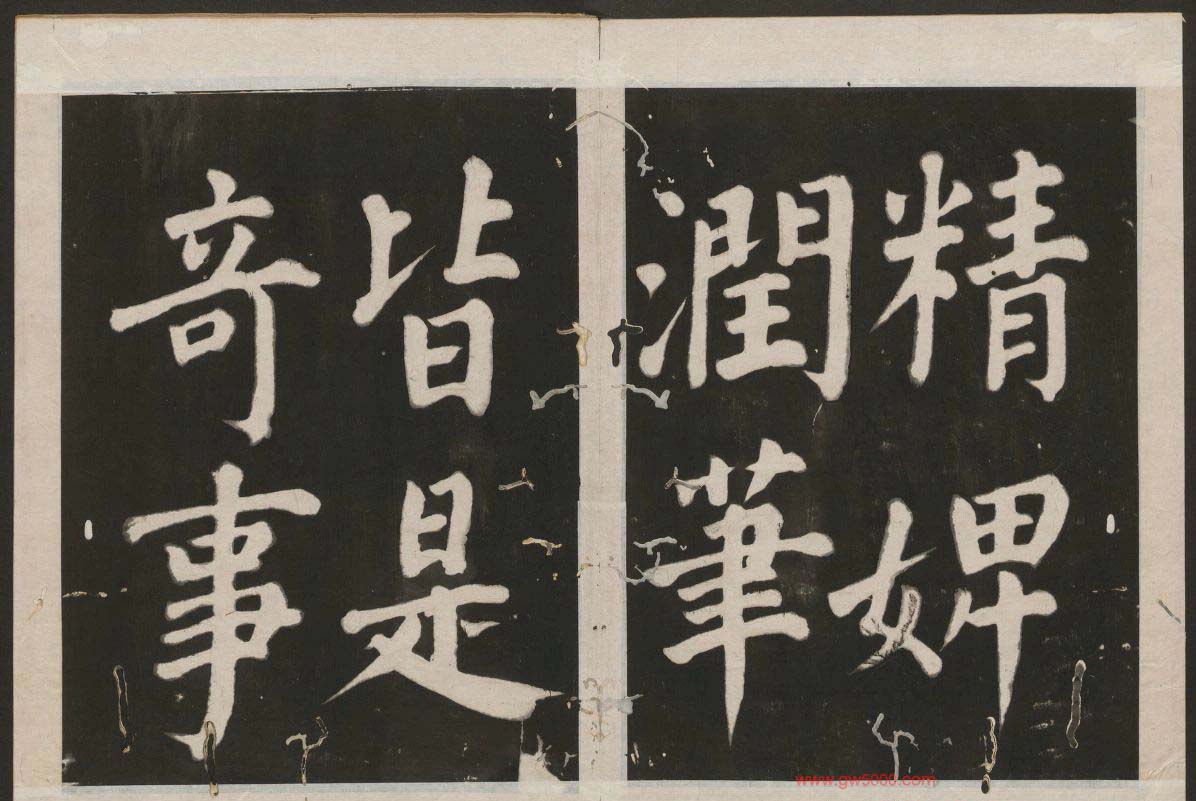 精婢
潤筆
皆是
奇事
www.gw5000.com